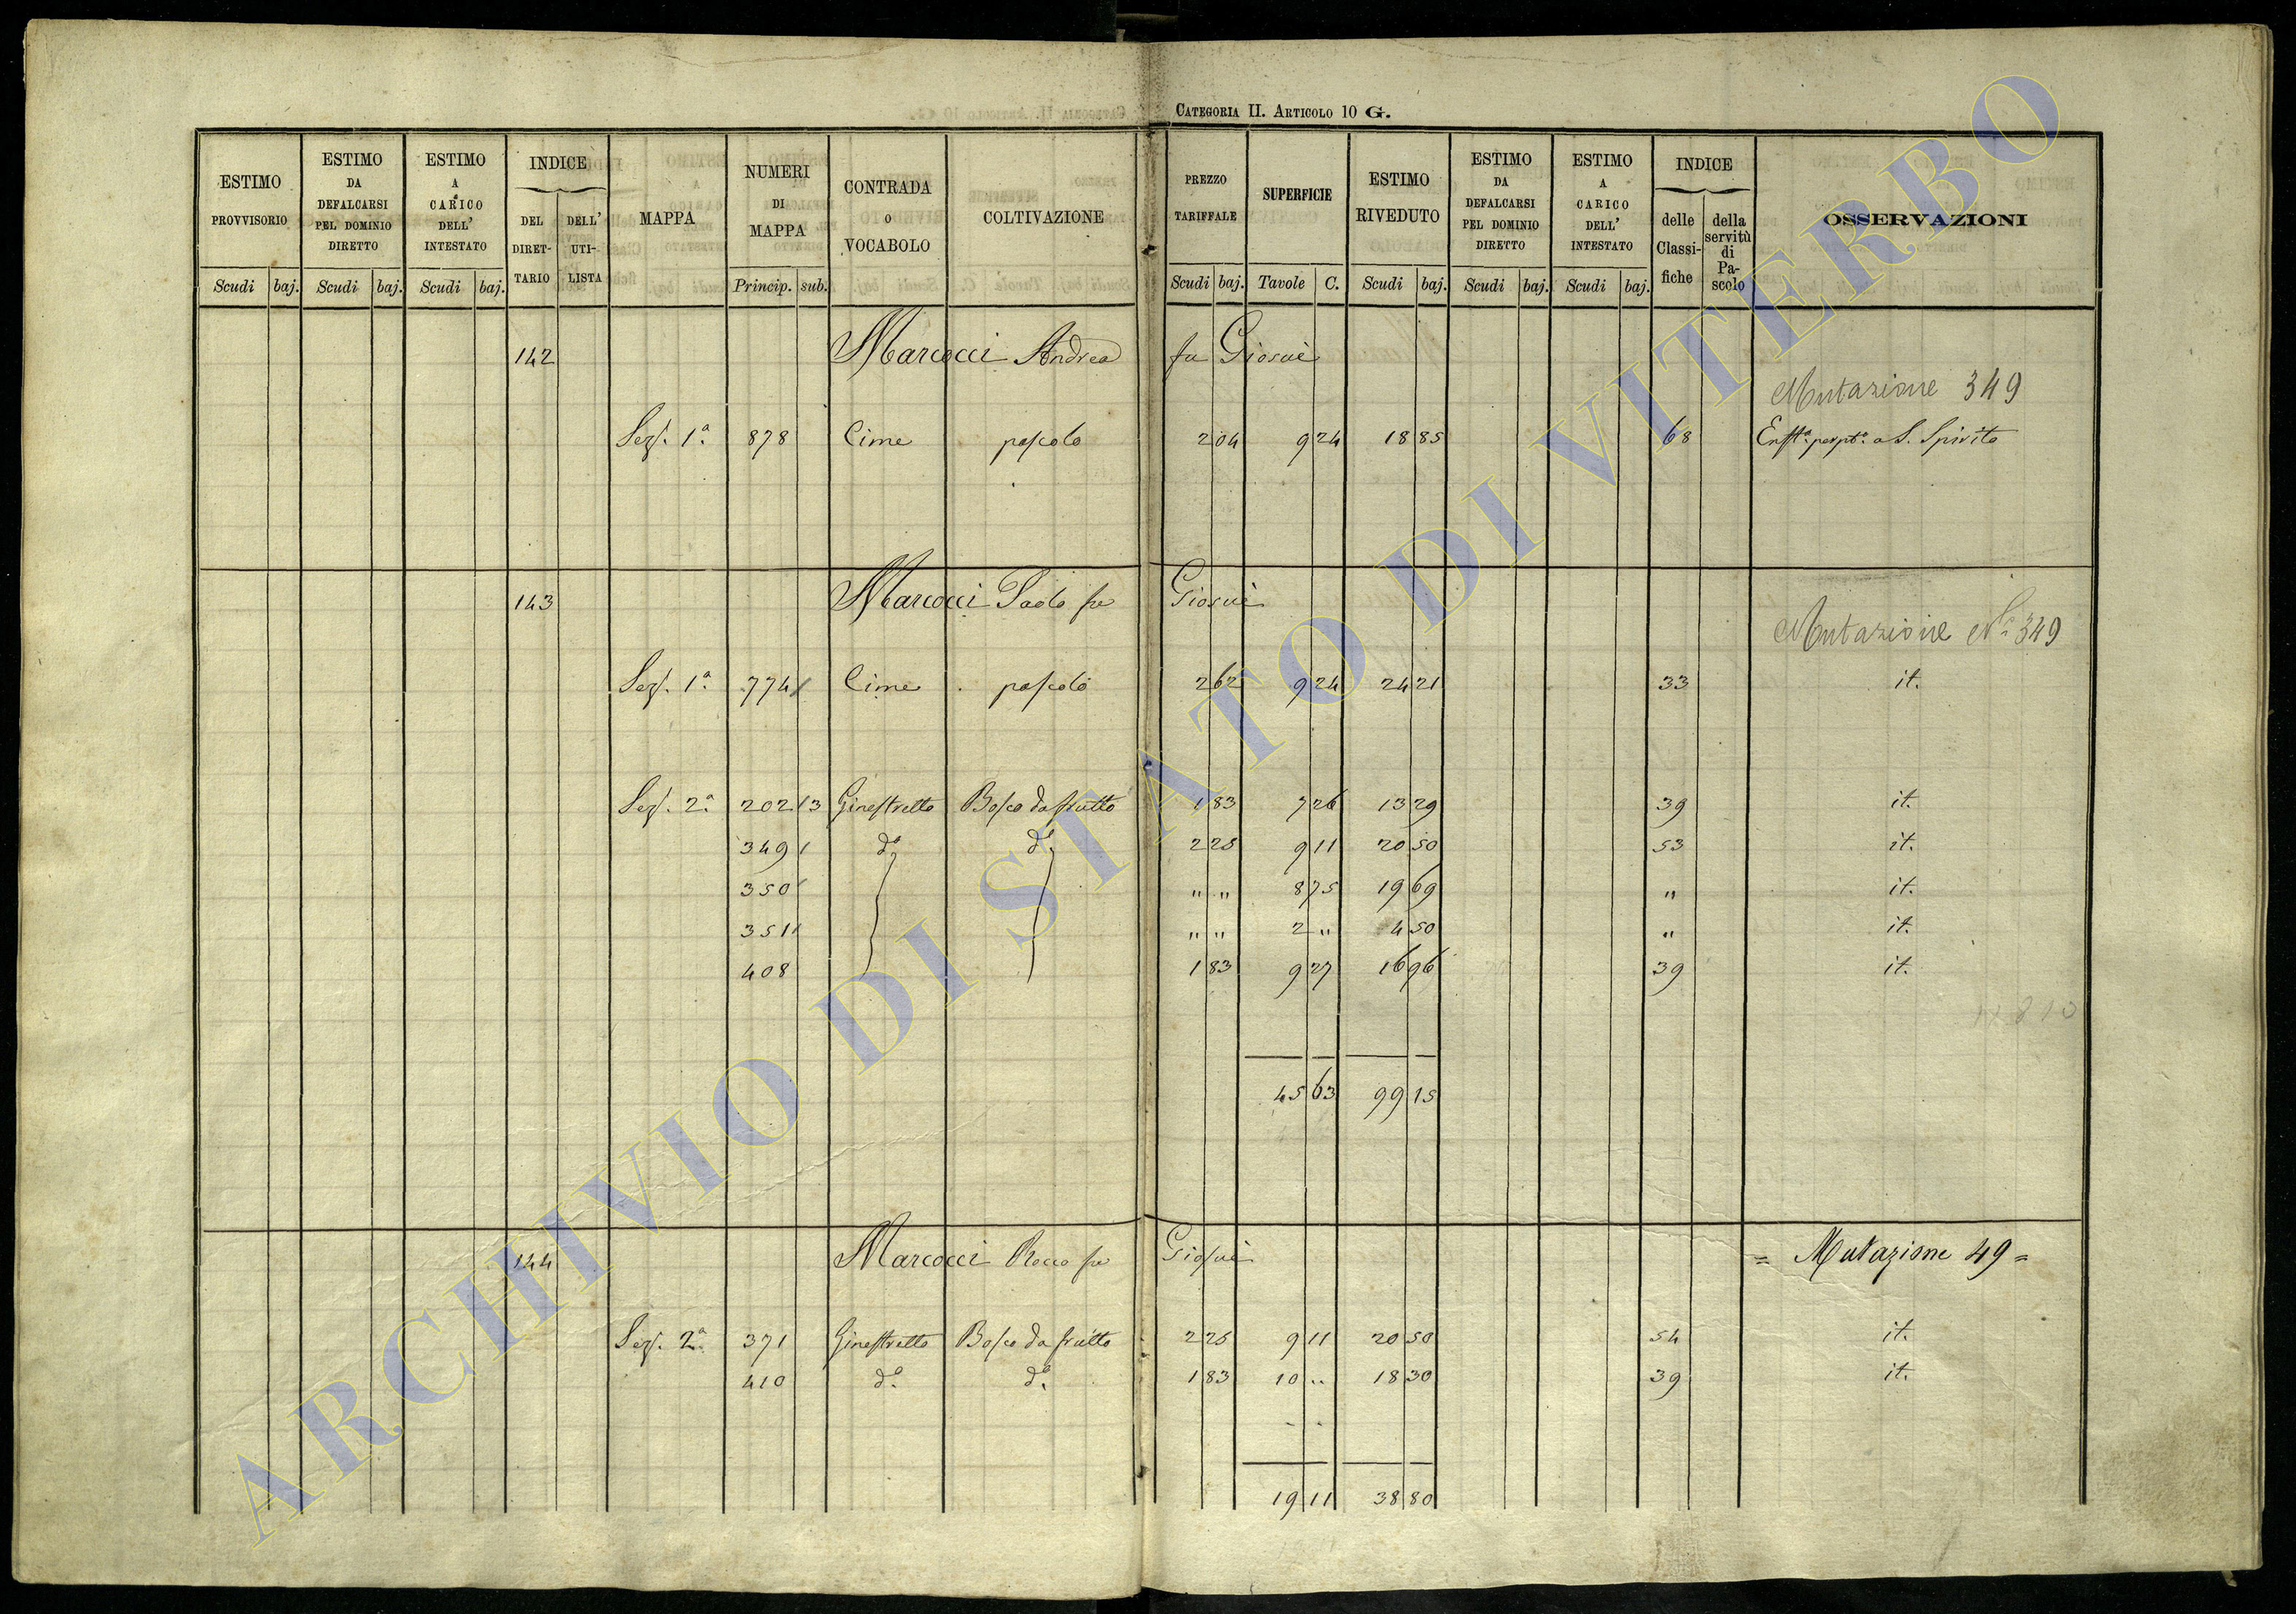 CATEGORIA II. ARTICOLO 10 G.
ESTIMO PROVVISORIO Scudi baj. ESTIMO DA DEFALCARSI PEL DOMINIO DIRETTO Scudi baj. ESTIMO A CARICO DELL' INTESTATO Scudi baj. INDICE DEL DIRET-TARIO DELL' UTI-LISTA MAPPA NUMERI DI MAPPA Princip. sub. CONTRADA O VOCABOLO COLTIVAZIONE PREZZO TARIFFALE Scudi baj. SUPERFICIE Tavole C. ESTIMO RIVEDUTO Scudi baj. ESTIMO DA DEFALCARSI PEL DOMINIO DIRETTO Scudi baj. ESTIMO A CARICO DELL' INTESTATO Scudi baj. INDICE delle Classi-fiche della servitù di Pa-scolo OSSERVAZIONI
142 Marcocci Andrea fu Giosuè
Mutazione 349
Sez. 1ª 878 Cime pascolo 2 04 9 24 18 85 68 Enfta. perpta. a S. Spirito
143 Marcocci Paolo fu Giosuè
Mutazione No. 349
Sez. 1ª 774 Cime pascolo 2 62 9 24 24 21 33 it.
Sez. 2ª 202 13 Ginestretto Bosco da frutto 1 83 7 26 13 29 39 it.
349 do. do. 2 25 9 11 20 50 53 it.
350 " " 8 75 19 69 " it.
351 " " 2 " 4 50 " it.
408 1 83 9 27 16 96 39 it.
45 63 99 15
144 Marcocci Rocco fu Giosuè = Mutazione 49 =
Sez. 2ª 371 Ginestretto Bosco da frutto 2 25 9 11 20 50 54 it.
410 do. do. 1 83 10 " 18 30 39 it.
19 11 38 80
ARCHIVIO DI STATO DI VITERBO